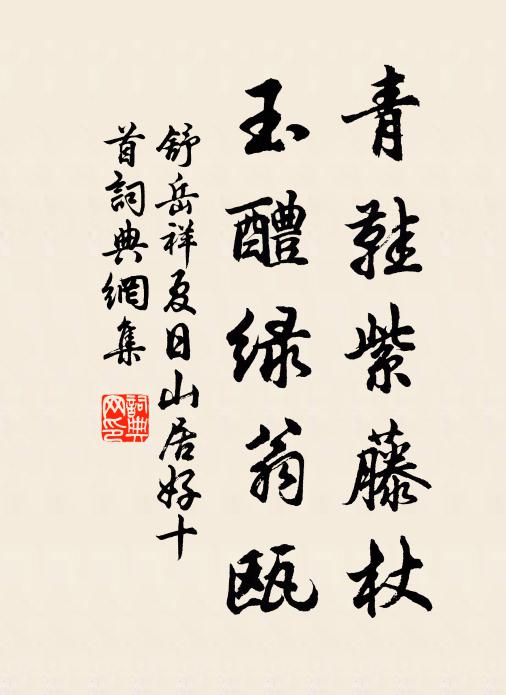 青鞋紫藤杖
玉醴绿翁瓯
舒岳祥夏日山居好十
首詞典網集
詞典網印